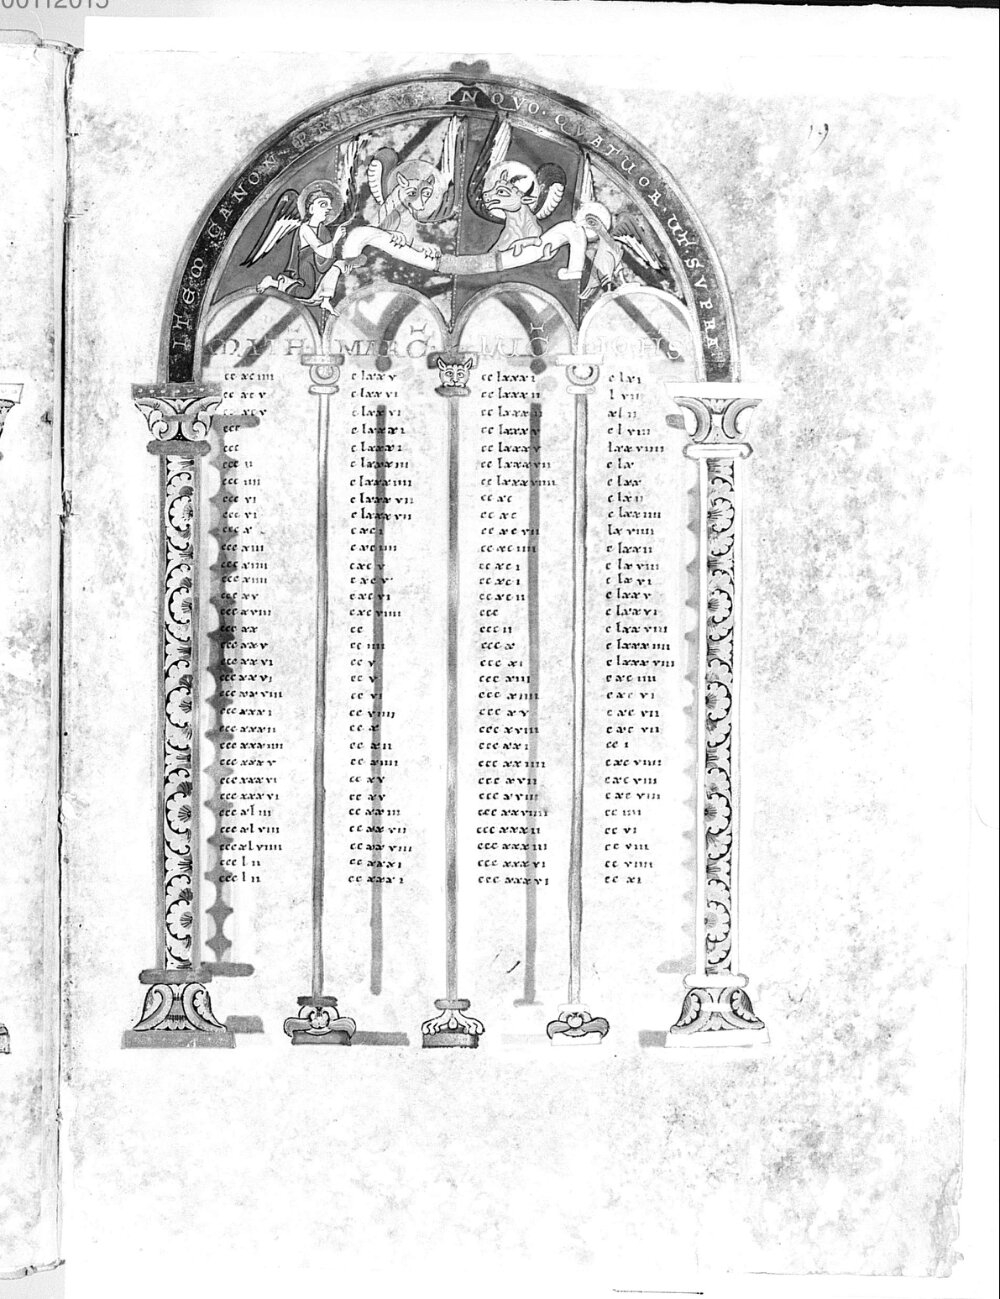 ITEM CANON PRIMUS IN QVO QVATUOR UT SVPRA
MATH MARC LUC IOHIS
cc xciiii c lxxv cc lxxxi c lvi
cc xc v c lxxvi cc lxxxii l vii
cc xc v c lxxvi cc lxxxii xl ii
ccc c lxxxi cc lxxxv c l viii
ccc c lxxxi cc lxxxv lxxviiii
ccc ii c lxxxiii cc lxxxvii c lx
ccc iiii c lxxxiiii cc lxxxviiii c lxx
ccc vi c lxxxvii cc xc c lxii
ccc vi c lxxxvii cc xc c lxxiiii
ccc x cxci cc xcvii lxviiii
ccc xiii cxciiii cc xciiii c lxxii
ccc xiiii cxc v cc xci c lxviii
ccc xiiii cxc v cc xci c lxvi
ccc xv cxc vi cc xcii c lxxv
ccc xviii cxcviiii ccc c lxxvi
ccc xx cc ccc ii c lxxviii
ccc xxv cc iiii ccc x c lxxxiiii
ccc xxvi cc v ccc xi c lxxxviii
ccc xxvi cc v ccc xiii cxc iiii
ccc xxviii cc vi ccc xiiii cxc vi
ccc xxxi cc viiii ccc xv cxc vii
ccc xxxii cc x ccc xviii cxc vii
ccc xxxiiii cc xii ccc xxi cc i
ccc xxxv cc xiiii ccc xxiiii cxc viiii
ccc xxxvi cc xv ccc xvii cxc viii
ccc xxxvi cc xv ccc xviii cxc viii
ccc xliii cc xxiii ccc xxviii cc iiii
ccc xlviii cc xxvii ccc xxxii cc vi
ccc xlviiii cc xxviii ccc xxxiii cc viii
ccc lii cc xxxi ccc xxxvi cc viiii
ccc lii cc xxxi ccc xxxvi cc xi